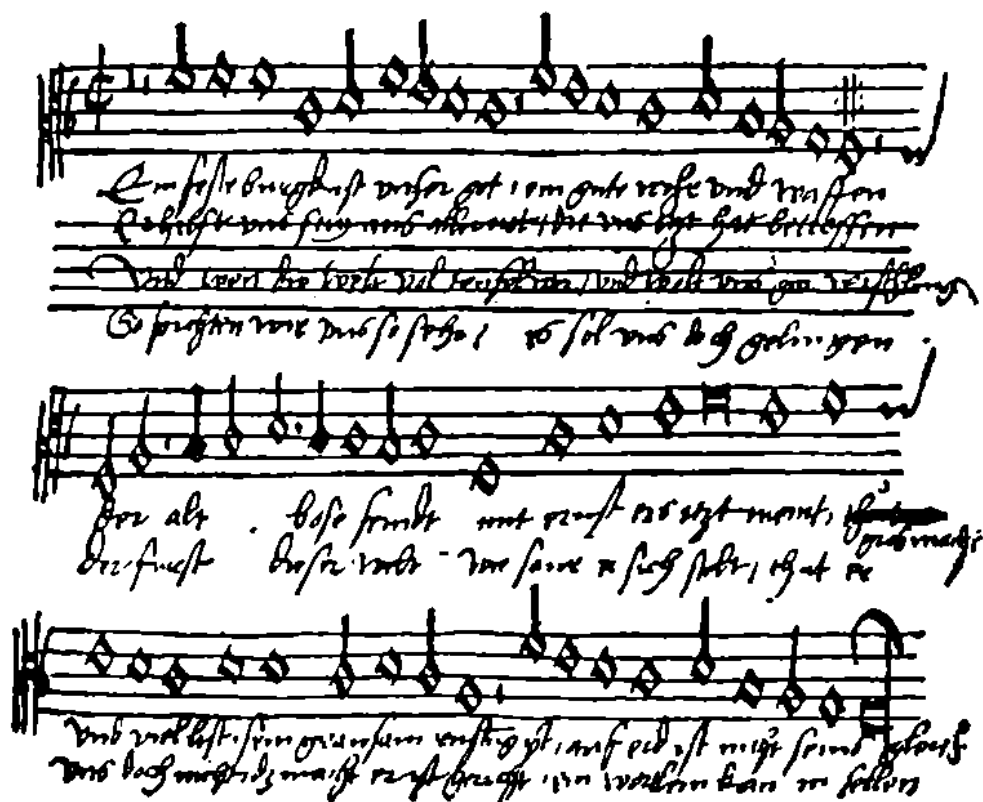 Ein feste burgk ist unser got, ein gute wehr und waffen
Er hilfft uns frey aus aller not, die uns itzt hat betroffen
Und wen die welt vol teuffel wer, und wolt uns gar verschling
So furchten wir uns so sehr, es sol uns doch gelingen
der alt bose feindt mit ernst ers itzt meint,
gros macht
der furst dieser welt wie saur er sich stelt, thut er
und viel list sein grausam rustu ist, auf erd ist nicht seins gleich
uns doch nicht, das macht er ist gericht, ein wortlein kan in fellen